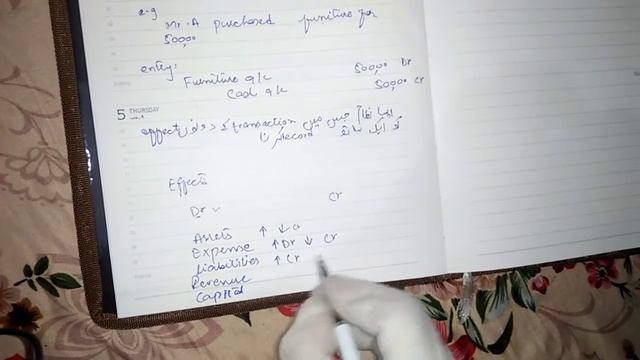 e.g
Mr. A purchased furniture for
50,000
entry:
Furniture a/c 50,000 Dr
Cash a/c 50,000 Cr
5 THURSDAY
ایسا نظام جس میں transaction کے دونوں effect
کو ایک ساتھ record کرنا
Effects
Dr Cr
Assets ↑ ↓
Expense ↑ Dr ↓ Cr
Liabilities ↑ Cr
Revenue
Capital